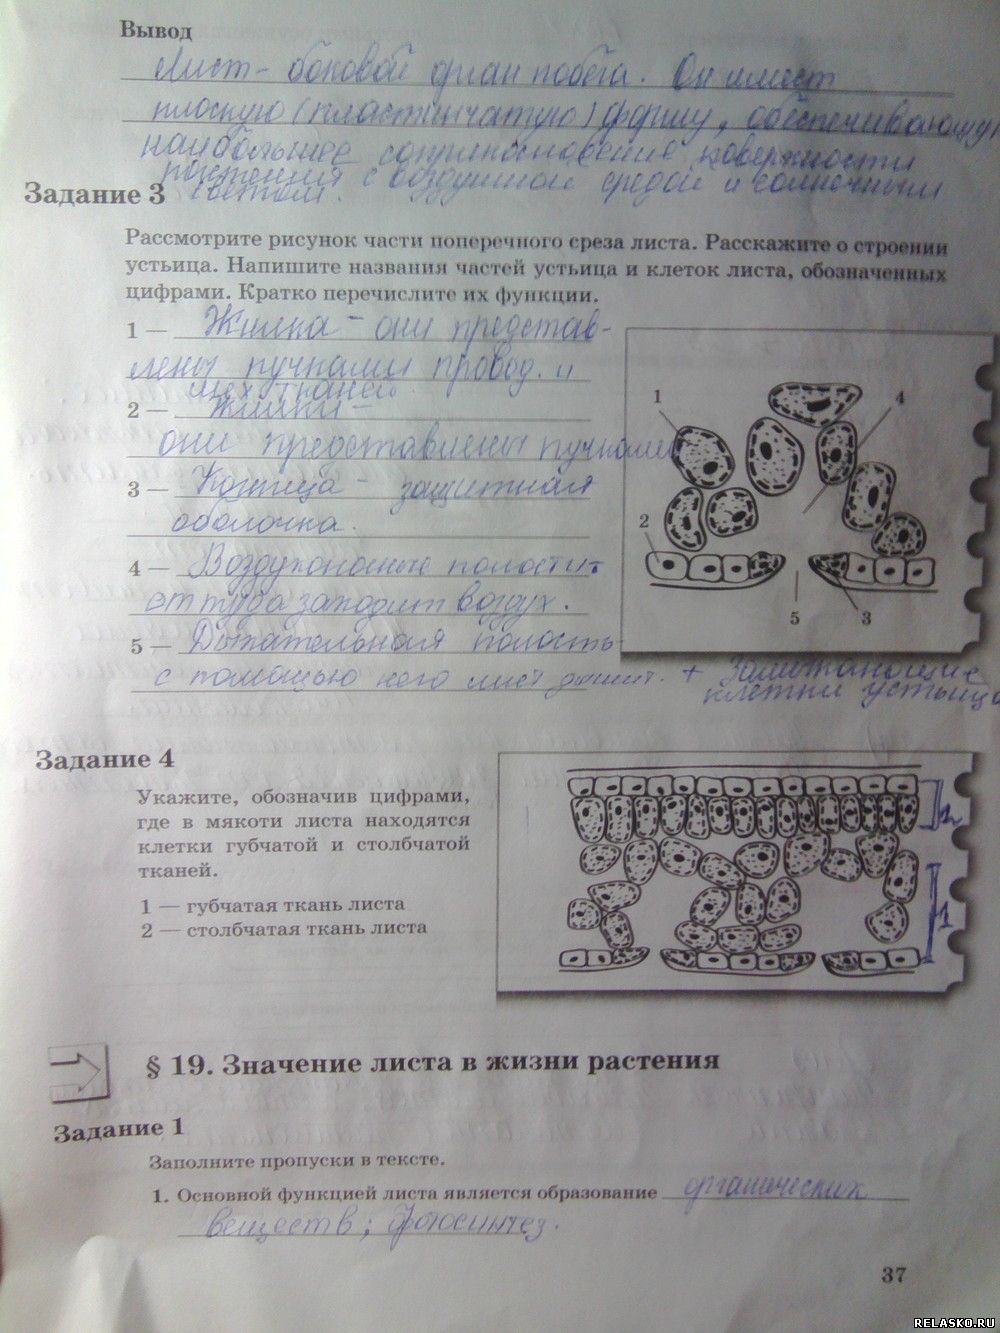 Вывод
Лист - боковой орган побега. Он имеет
плоскую (пластинчатую) форму, обеспечивающую
наибольшее соприкосновение поверхности
растения с воздушной средой и солнечным
светом.
Задание 3
Рассмотрите рисунок части поперечного среза листа. Расскажите о строении
устьица. Напишите названия частей устьица и клеток листа, обозначенных
цифрами. Кратко перечислите их функции.
1 — Жилка - они представ-
лены пучками провод. и
мех. тканей.
2 — Жилки -
они представлены пучками
3 — Кожица - защитная
оболочка.
4 — Воздухоносные полости -
оттуда заходит воздух.
5 — Дыхательная полость -
с помощью него лист дышит. + Замыкающие
клетки устьица
1
4
2
5
3
Задание 4
Укажите, обозначив цифрами,
где в мякоти листа находятся
клетки губчатой и столбчатой
тканей.
1 — губчатая ткань листа
2 — столбчатая ткань листа
2
1
§ 19. Значение листа в жизни растения
Задание 1
Заполните пропуски в тексте.
1. Основной функцией листа является образование органических
веществ; фотосинтез.
37
RELASKO.RU